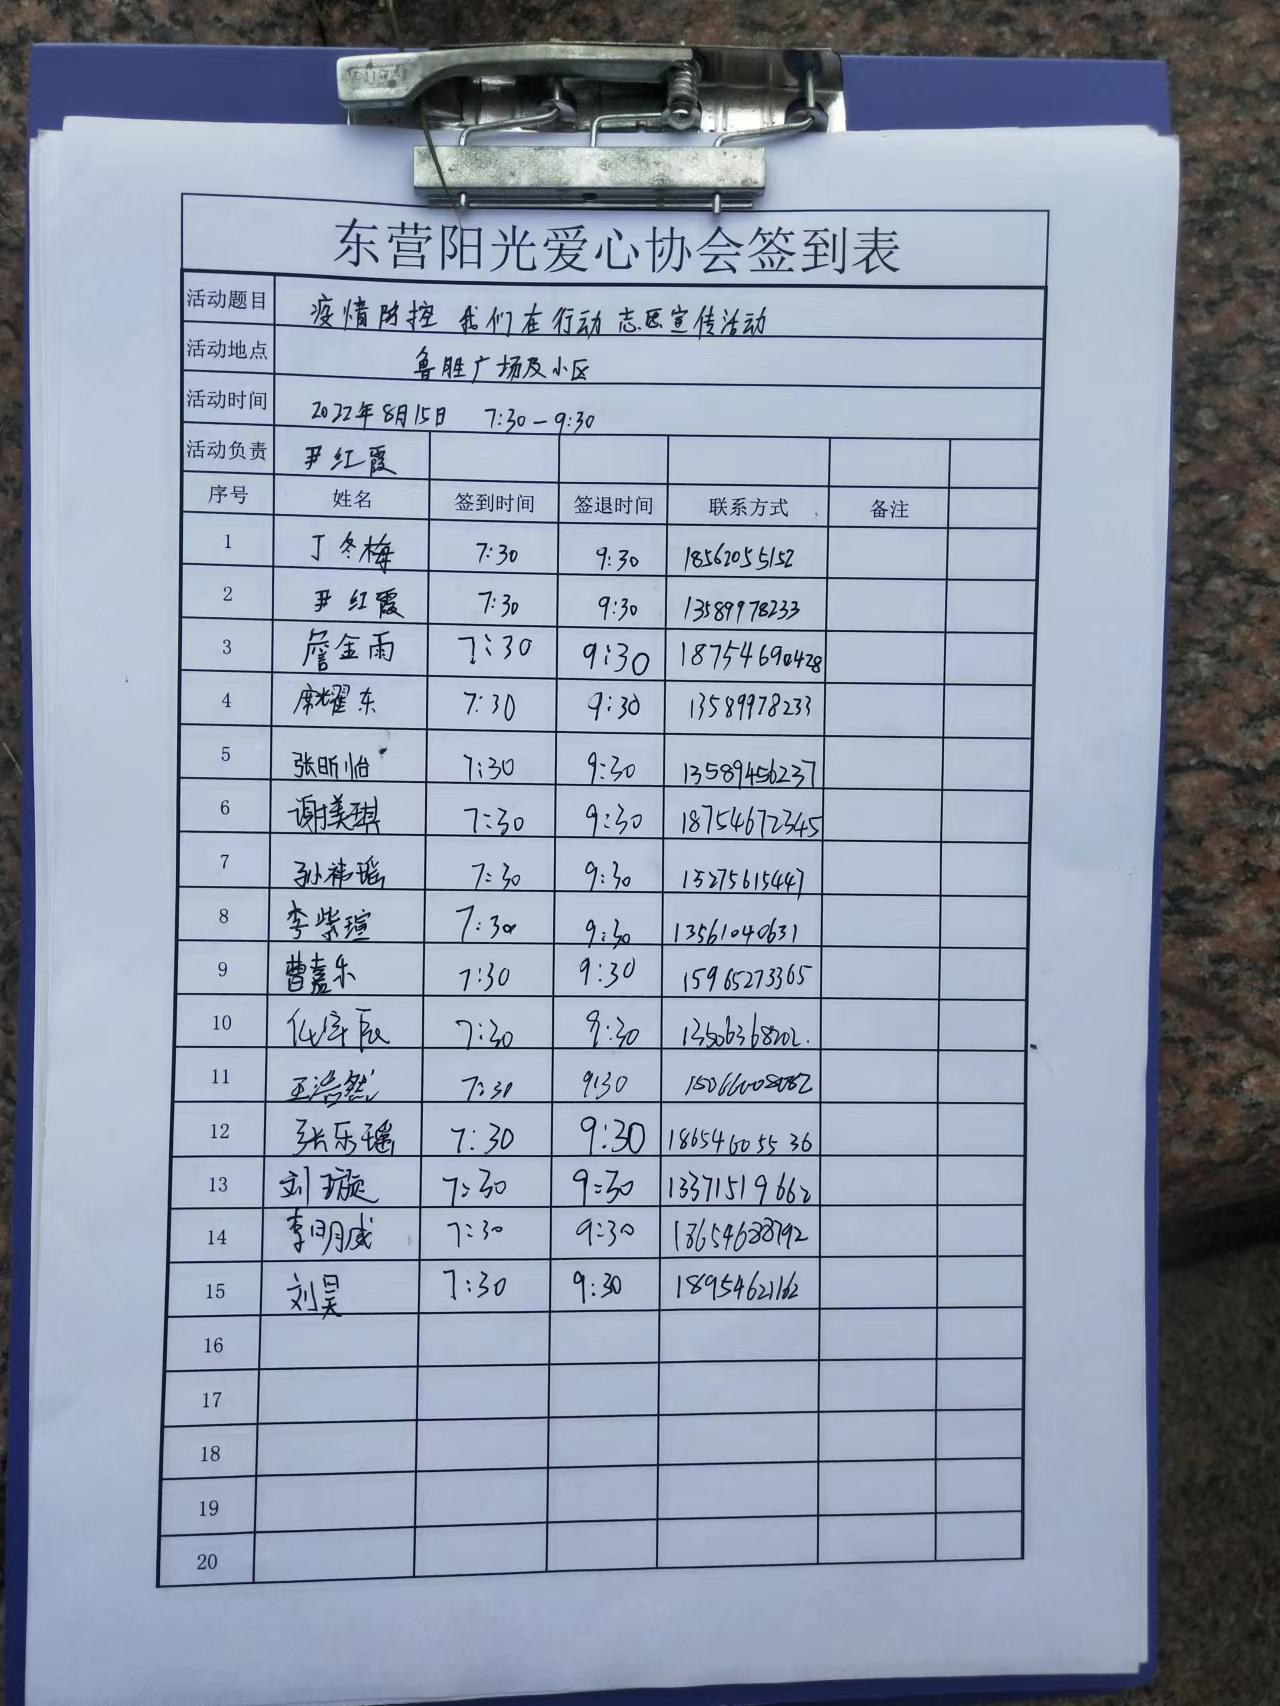 东营阳光爱心协会签到表
活动题目 疫情防控 我们在行动 志愿宣传活动
活动地点 鲁胜广场及小区
活动时间 2022年8月15日 7:30-9:30
活动负责 尹红霞
序号 姓名 签到时间 签退时间 联系方式 备注
1 丁冬梅 7:30 9:30 18562055152
2 尹红霞 7:30 9:30 13589978233
3 詹金雨 7:30 9:30 18754690428
4 耀东 7:30 9:30 13589978233
5 张昕怡 7:30 9:30 13589456237
6 谢美琪 7:30 9:30 18754672345
7 孙祎瑶 7:30 9:30 15275615447
8 李紫瑄 7:30 9:30 13561040631
9 曹嘉乐 7:30 9:30 15965273365
10 7:30 9:30 13506368202.
11 王浩然 7:30 9:30
12 张乐瑶 7:30 9:30 18654605536
13 刘璇 7:30 9:30 13371519662
14 李明威 7:30 9:30
15 刘昊 7:30 9:30 18954621162
16
17
18
19
20